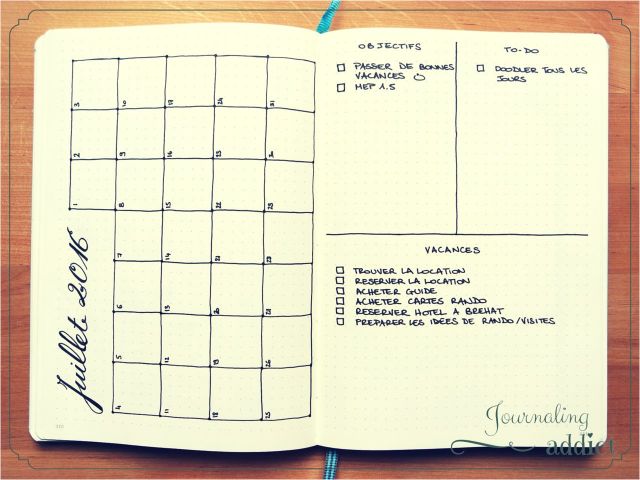 Juillet 2016
1 2 3
4 5 6 7 8 9 10
11 12 13 14 15 16 17
18 19 20 21 22 23 24
25 26 27 28 29 30 31
OBJECTIFS
PASSER DE BONNES
VACANCES
MEP 1.5
TO-DO
DOODLER TOUS LES
JOURS
VACANCES
TROUVER LA LOCATION
RESERVER LA LOCATION
ACHETER GUIDE
ACHETER CARTES RANDO
RESERVER HOTEL A BREHAT
PREPARER LES IDEES DE RANDO/VISITES
Journaling
addict